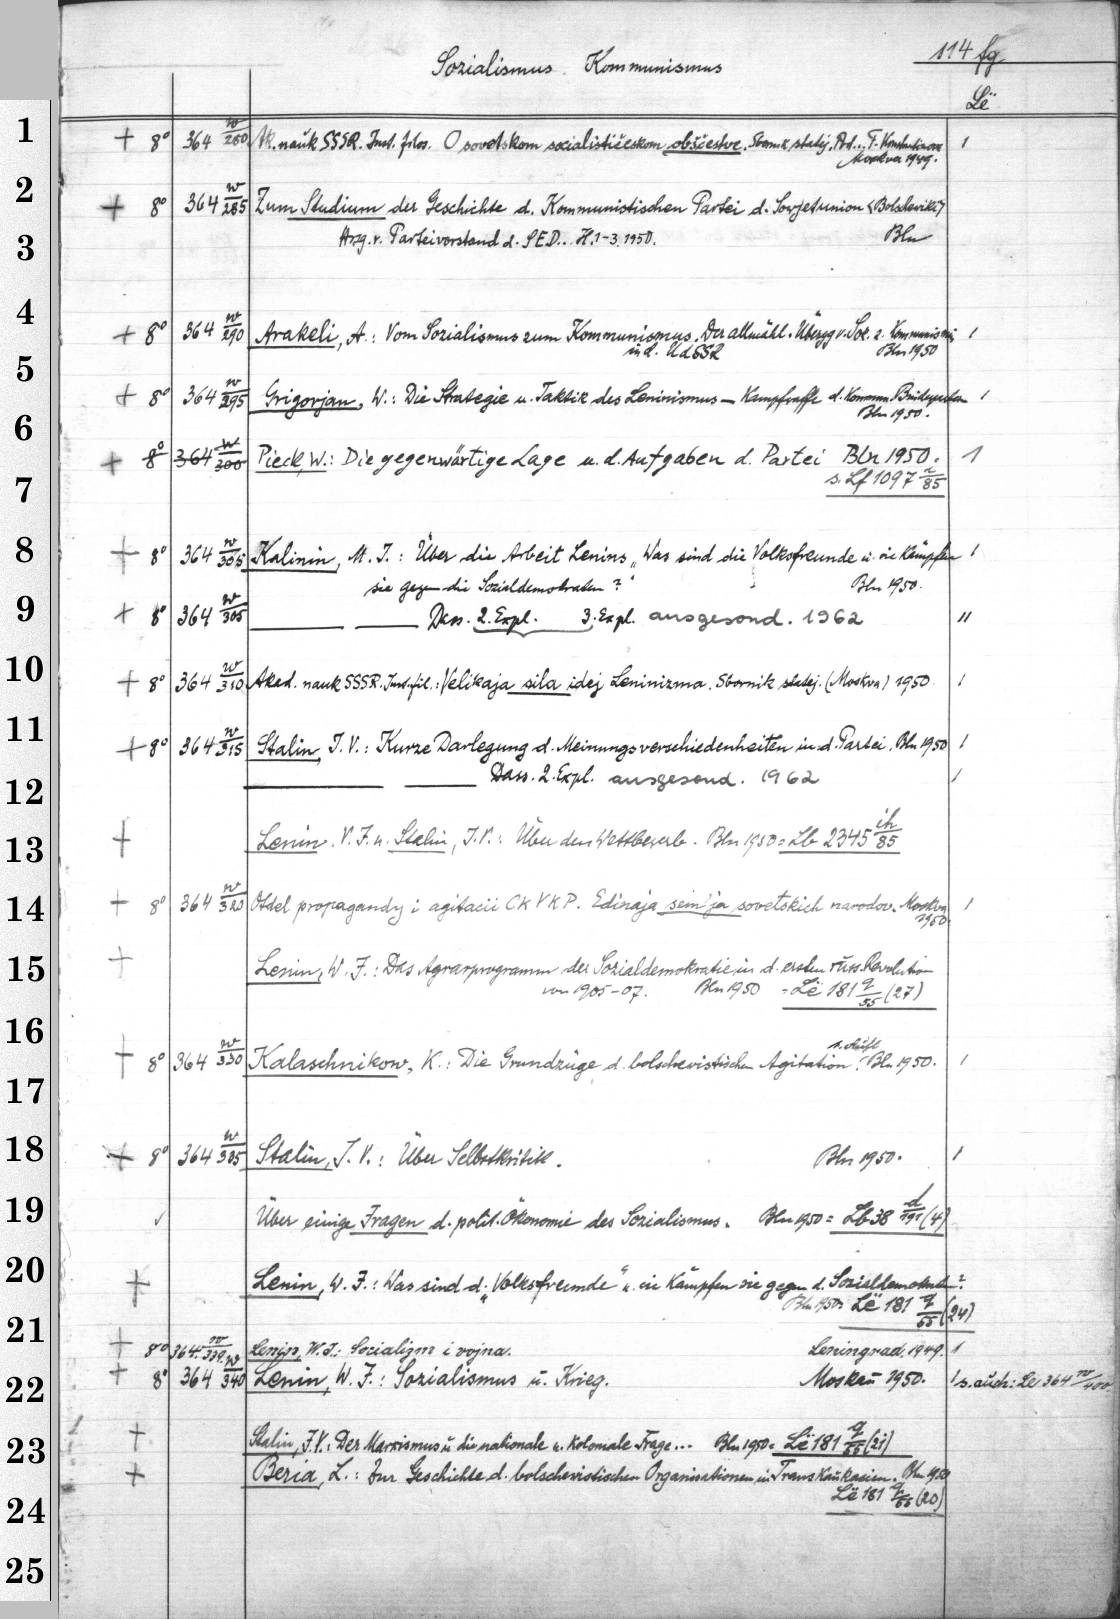 114 fg
Sozialismus. Kommunismus
Lë
1
+ 8° 364 w/280 Ak. nauk SSSR. Inst. filos. O sovetskom socialističeskom obščestve. Sbornik statej. Pod... F. Konstantinova 1
Moskva 1949.
2
+ 8° 364 w/285 Zum Studium der Geschichte d. Kommunistischen Partei d. Sowjetunion <Bolschewiki>
3
Hrsg. v. Parteivorstand d. SED.. H. 1-3. 1950. Bln
4
+ 8° 364 w/290 Arakeli, A.: Vom Sozialismus zum Kommunismus. Der allmähl. Überg. v. Soz. z. Kommunismus 1
in d. UdSSR Bln 1950
5
+ 8° 364 w/295 Grigorjan, W.: Die Strategie u. Taktik des Leninismus — Kampfwaffe d. Kommun. Bruderparteien 1
Bln 1950.
6
+ 8° 364 w/300 Pieck, W.: Die gegenwärtige Lage u. d. Aufgaben d. Partei Bln 1950. 1
7
s. Lf 1097 r/85
8
+ 8° 364 w/305 Kalinin, M. I.: Über die Arbeit Lenins „Was sind die Volksfreunde u. wie kämpfen 1
sie gegen die Sozialdemokraten?" Bln 1950.
9
+ 8° 364 w/305 ___ ___ Dass. 2. Expl. 3. Expl. ausgesond. 1962 11
10
+ 8° 364 w/310 Akad. nauk SSSR. Inst. fil.: Velikaja sila idej Leninizma. Sbornik statej. (Moskva) 1950 1
11
+ 8° 364 w/315 Stalin, J. V.: Kurze Darlegung d. Meinungsverschiedenheiten in d. Partei. Bln 1950 1
12
___ ___ Dass. 2. Expl. ausgesond. 1962 1
13
+ Lenin, V. J. u. Stalin, J. V.: Über den Wettbewerb. Bln 1950 = Lb 2345 ih/85
14
+ 8° 364 w/320 Otdel propagandy i agitacii CK VKP. Edinaja sem'ja sovetskich narodov. Moskva 1
1950.
15
+ Lenin, W. J.: Das Agrarprogramm der Sozialdemokratie in d. ersten russ. Revolution
von 1905-07. Bln 1950 = Lë 181 q/55 (27)
16
1. Aufl
+ 8° 364 w/330 Kalaschnikow, K.: Die Grundzüge d. bolschewistischen Agitation. Bln 1950. 1
17
18
+ 8° 364 w/335 Stalin, J. V.: Über Selbstkritik. Bln 1950. 1
19
✓ Über einige Fragen d. polit. Ökonomie des Sozialismus. Bln 1950 = Lb 38 d/191 (4)
20
+ Lenin, W. J.: Was sind d. „Volksfreunde" u. wie kämpfen sie gegen d. Sozialdemokraten?
Bln 1950= Lë 181 q/55 (24)
21
+ 8° 364. w/339. Lenin, W. I.: Socializm i vojna. Leningrad. 1949. 1
22
+ 8° 364 w/340 Lenin, W. J.: Sozialismus u. Krieg. Moskau 1950. 1 s. auch: Le 364 w/400
23
+ Stalin, J. V.: Der Marxismus u. die nationale u. koloniale Frage... Bln 1950= Lë 181 q/55 (21)
+ Beria, L.: Zur Geschichte d. bolschewistischen Organisationen in Transkaukasien. Bln 1950
24
Lë 181 q/55 (20)
25